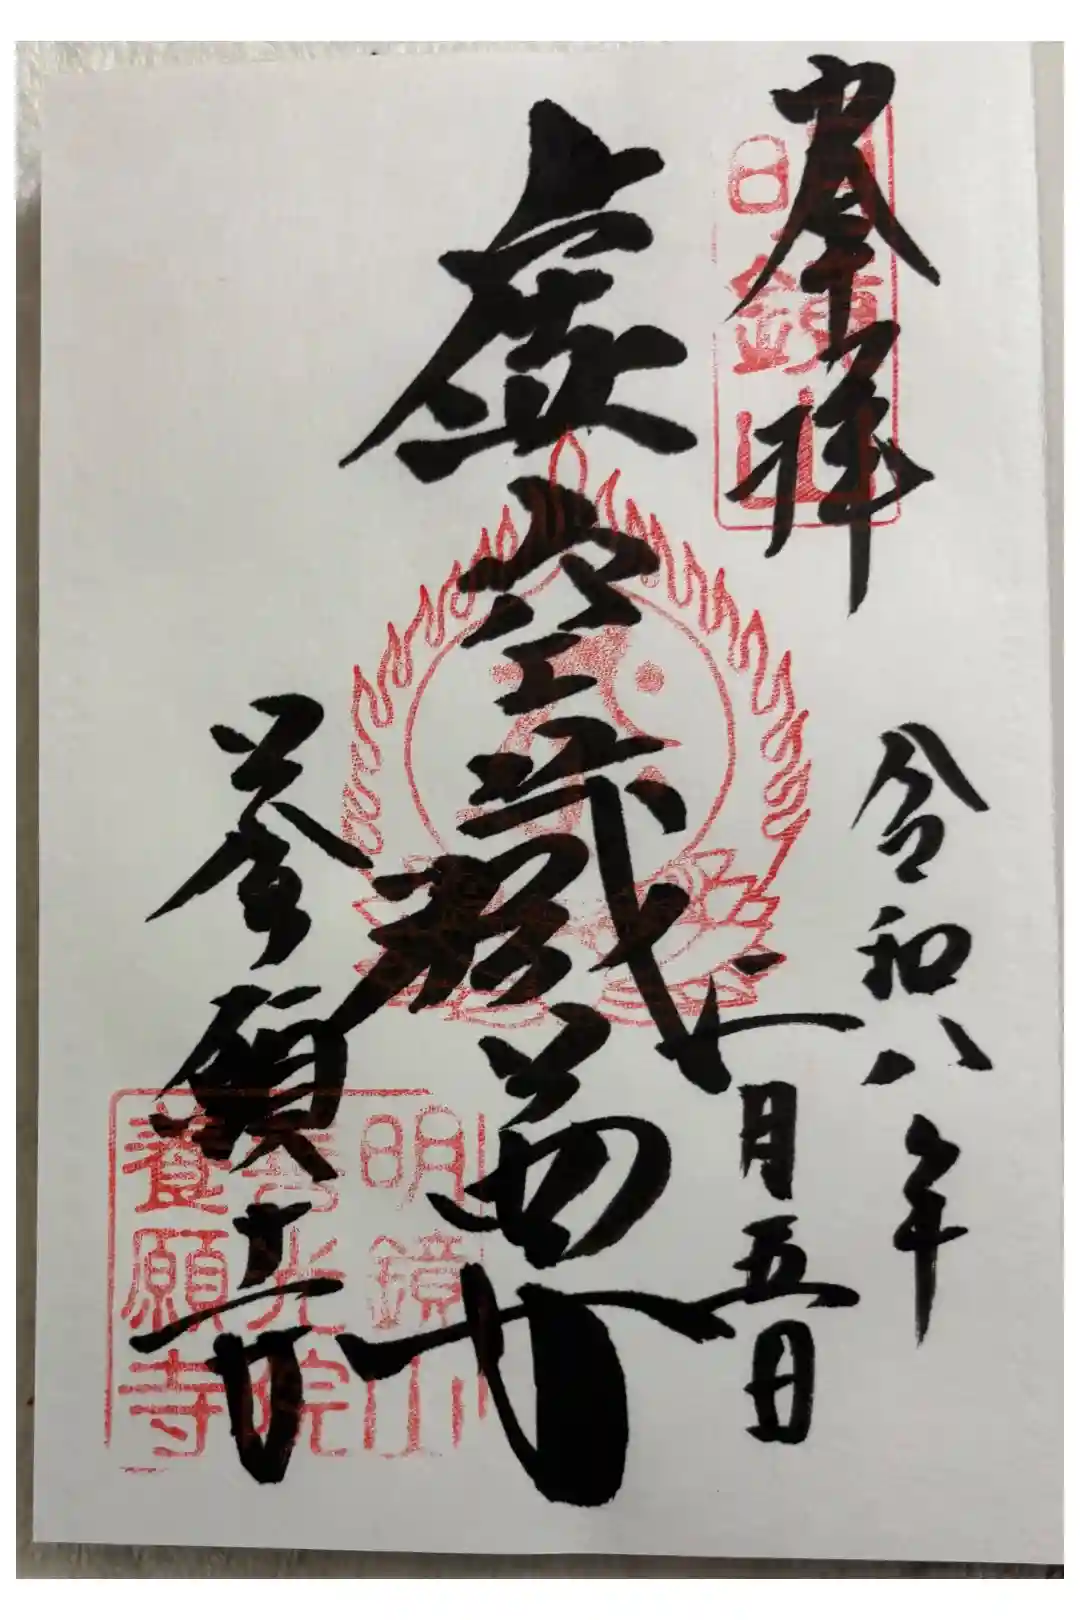 奉拝
令和八年
二月五日
虚空蔵尊
養願寺
明鏡山
明鏡山
善光院
養願寺